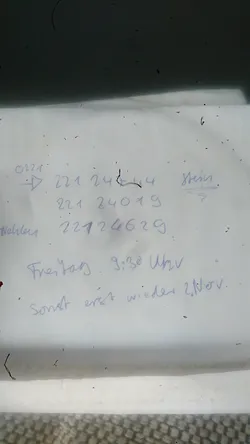 0221
221 24444 Stein
221 24019
221 24629
Freitag 9:30 Uhr
Sonst erst wieder 2. Nov.